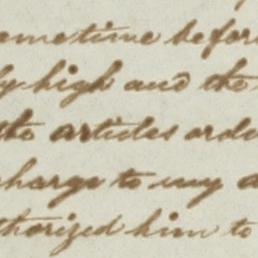 ometime befor
ly high and the
the articles orde
charge to my a
thorized him to